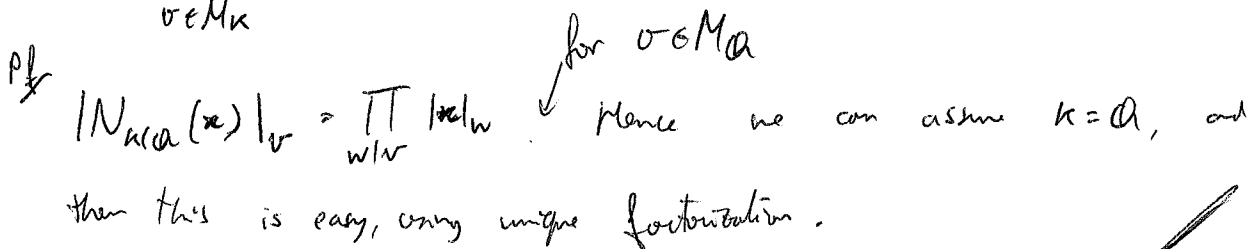 v ∈ M_K
for v ∈ M_Q
Pf |N_{K/Q}(x)|_v = ∏_{w|v} |x|_w . Hence we can assume K = Q, and
then this is easy, using unique factorization.